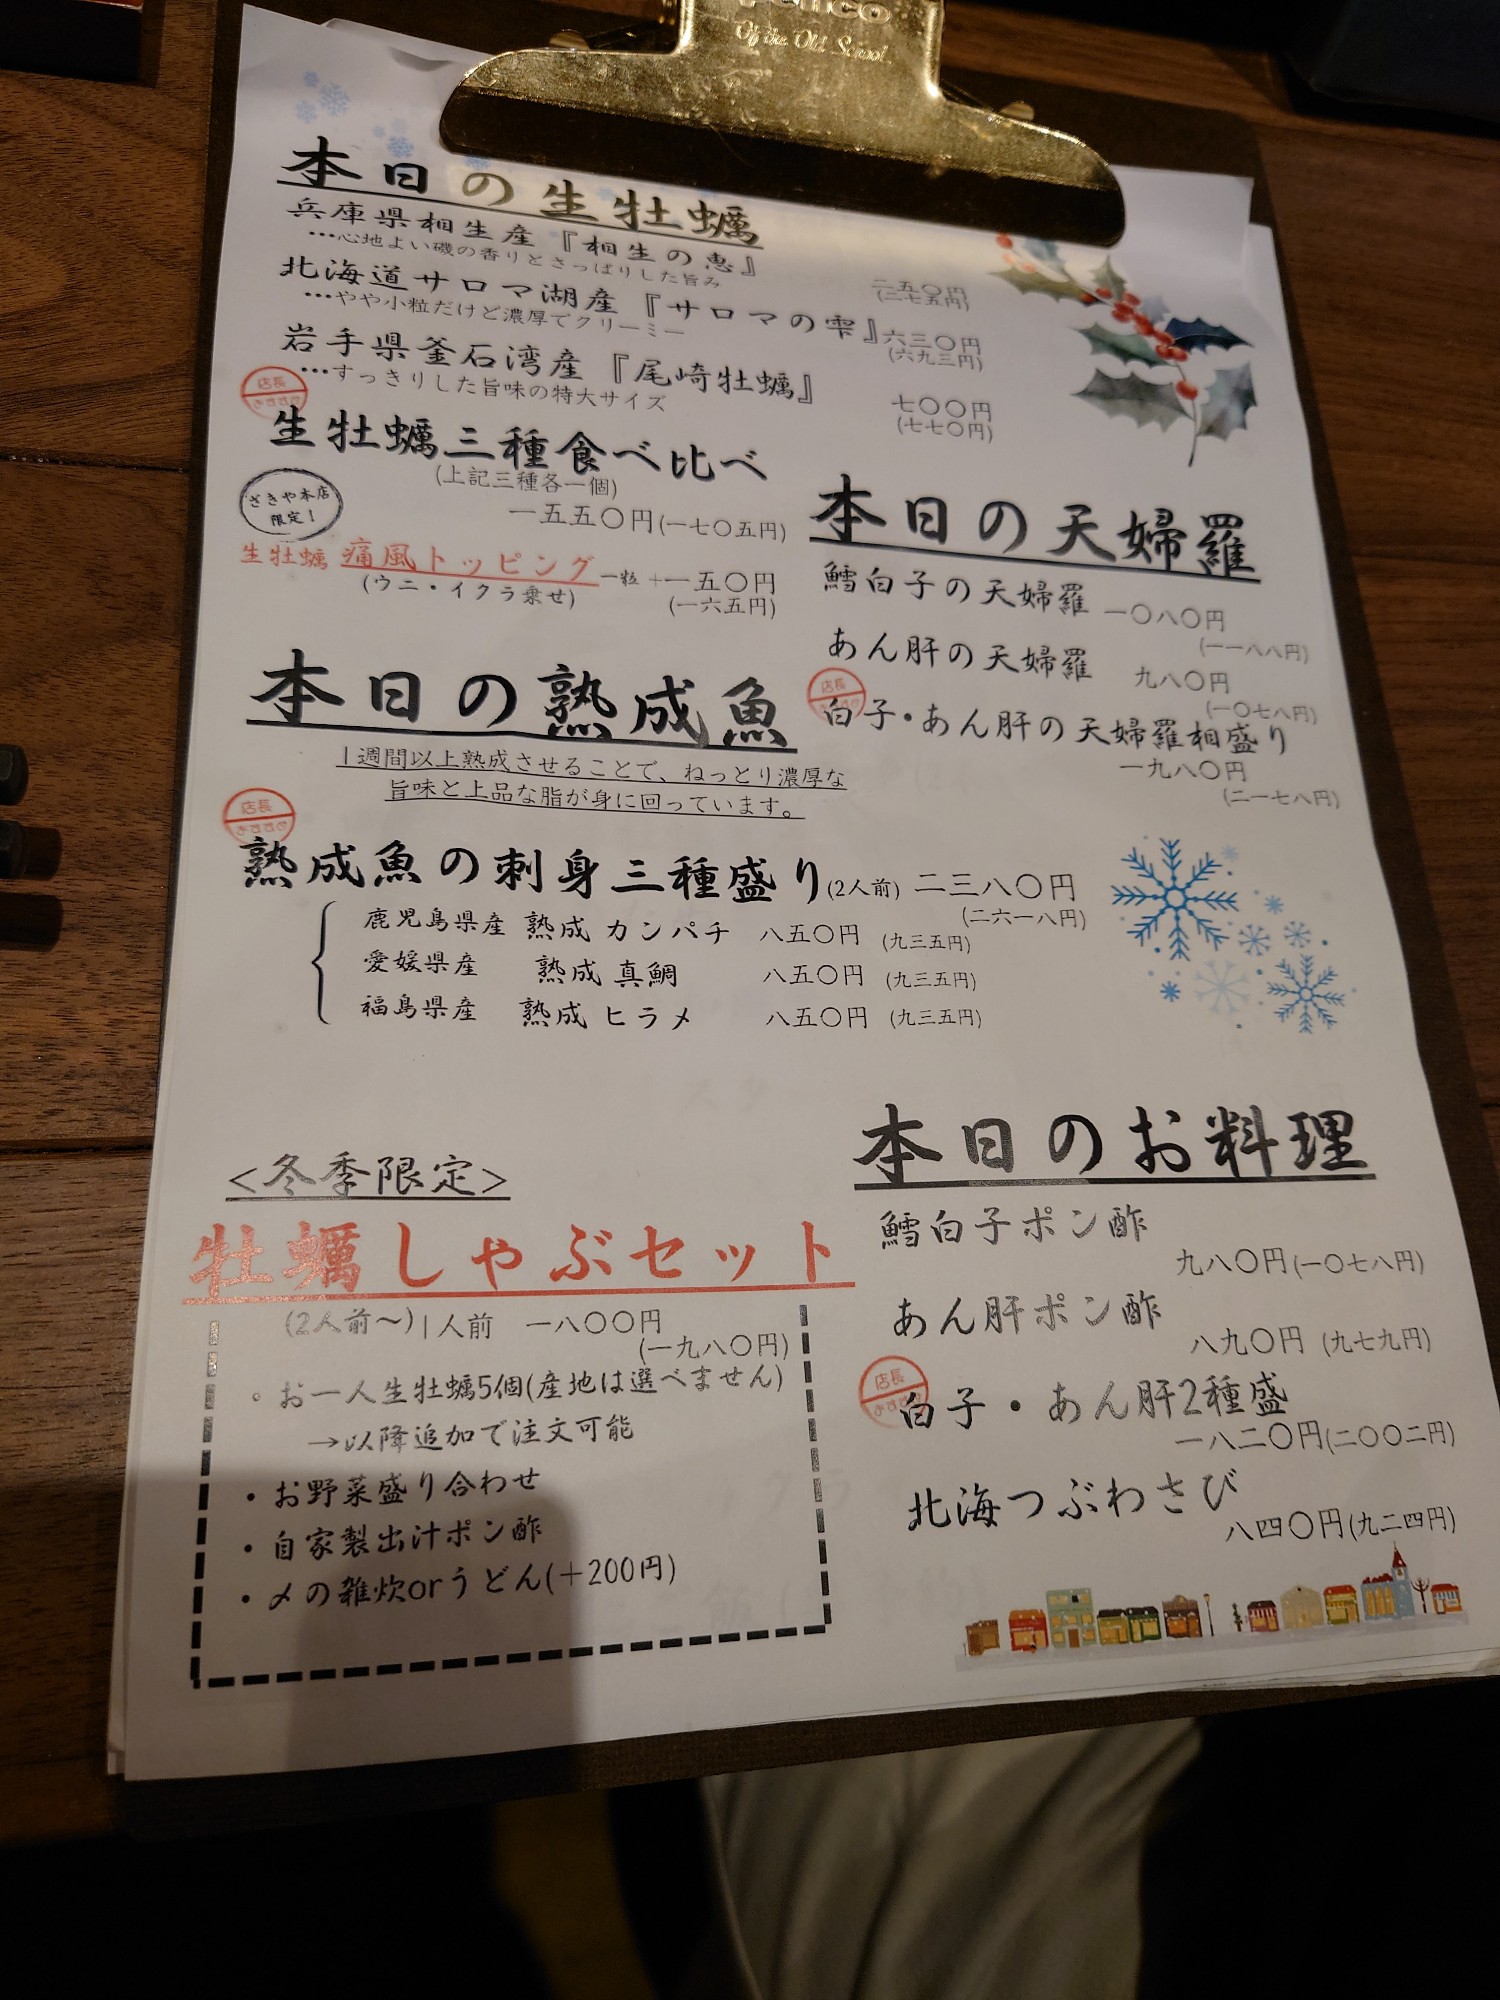 Of the Old School.
本日の生牡蠣
兵庫県相生産『相生の恵』
…心地よい磯の香りとさっぱりした旨み
二五〇円
(二七五円)
北海道サロマ湖産『サロマの雫』六三〇円
…やや小粒だけど濃厚でクリーミー
(六九三円)
岩手県釜石湾産『尾崎牡蠣』
…すっきりした旨味の特大サイズ
七〇〇円
(七七〇円)
店長
生牡蠣三種食べ比べ
(上記三種各一個)
一五五〇円(一七〇五円)
ざきや本店
限定!
生牡蠣 痛風トッピング 一粒 +一五〇円
(ウニ・イクラ乗せ)
(一六五円)
本日の天婦羅
鱈白子の天婦羅 一〇八〇円
(一一八八円)
あん肝の天婦羅 九八〇円
(一〇七八円)
店長
白子・あん肝の天婦羅相盛り
一九八〇円
(二一七八円)
本日の熟成魚
1週間以上熟成させることで、ねっとり濃厚な
旨味と上品な脂が身に回っています。
店長
熟成魚の刺身三種盛り(2人前) 二三八〇円
(二六一八円)
鹿児島県産 熟成 カンパチ 八五〇円 (九三五円)
愛媛県産 熟成 真鯛 八五〇円 (九三五円)
福島県産 熟成 ヒラメ 八五〇円 (九三五円)
<冬季限定>
牡蠣しゃぶセット
(2人前〜)1人前 一八〇〇円
(一九八〇円)
・お一人生牡蠣5個(産地は選べません)
→以降追加で注文可能
・お野菜盛り合わせ
・自家製出汁ポン酢
・〆の雑炊orうどん(+200円)
本日のお料理
鱈白子ポン酢
九八〇円(一〇七八円)
あん肝ポン酢
八九〇円 (九七九円)
店長
白子・あん肝2種盛
一八二〇円(二〇〇二円)
北海つぶわさび
八四〇円(九二四円)